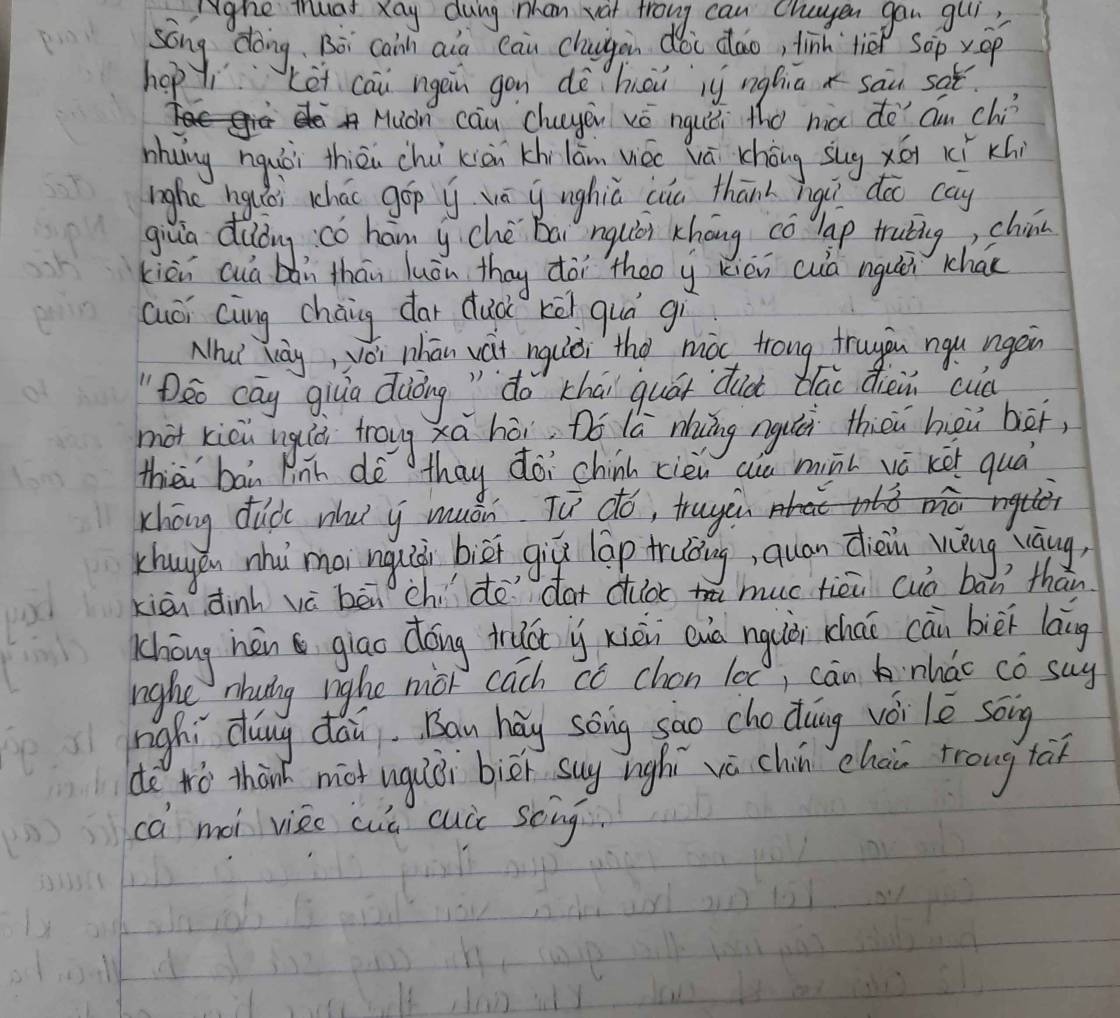 Nghệ thuật xây dựng nhân vật trong câu chuyện gần gũi,
sống động. Bối cảnh của câu chuyện độc đáo, tình tiết sắp xếp
hợp lí. Kết cấu ngắn gọn dễ hiểu ý nghĩa sâu sắc.
Tác giả đã Mượn câu chuyện về người thợ mộc để ám chỉ
những người thiếu chủ kiến khi làm việc và không suy xét kĩ khi
nghe người khác góp ý. và ý nghĩa của thành ngữ đẽo cày
giữa đường có hàm ý chê bai người không có lập trường, chính
kiến của bản thân luôn thay đổi theo ý kiến của người khác
cuối cùng chẳng đạt được kết quả gì.
Như vậy, với nhân vật người thợ mộc trong truyện ngụ ngôn
"Đẽo cày giữa đường" đã khái quát được đặc điểm của
một kiểu người trong xã hội. Đó là những người thiếu hiểu biết,
thiếu bản lĩnh dễ thay đổi chính kiến của mình và kết quả
không được như ý muốn. Từ đó, truyện nhắc nhở mỗi người
khuyên nhủ mọi người biết giữ lập trường, quan điểm vững vàng,
kiên định và bền chí để đạt được mục tiêu của bản thân.
không nên giao động trước ý kiến của người khác cần biết lắng
nghe nhưng nghe một cách có chọn lọc, cân nhắc có suy
nghĩ đúng đắn. Bạn hãy sống sao cho đúng với lẽ sống
để trở thành một người biết suy nghĩ và chín chắn trong tất
cả mọi việc của cuộc sống.